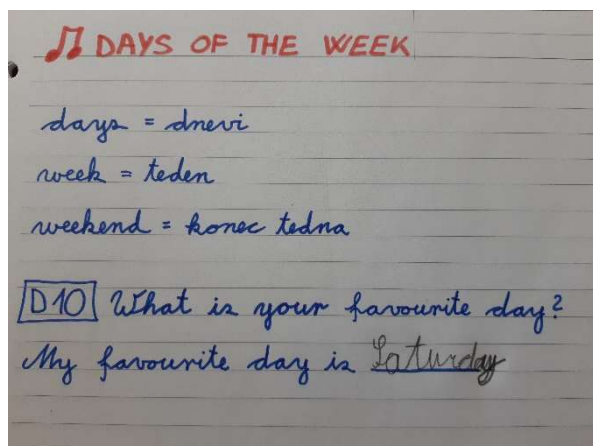 DAYS OF THE WEEK
days = dnevi
week = teden
weekend = konec tedna
D10 What is your favourite day?
My favourite day is Saturday